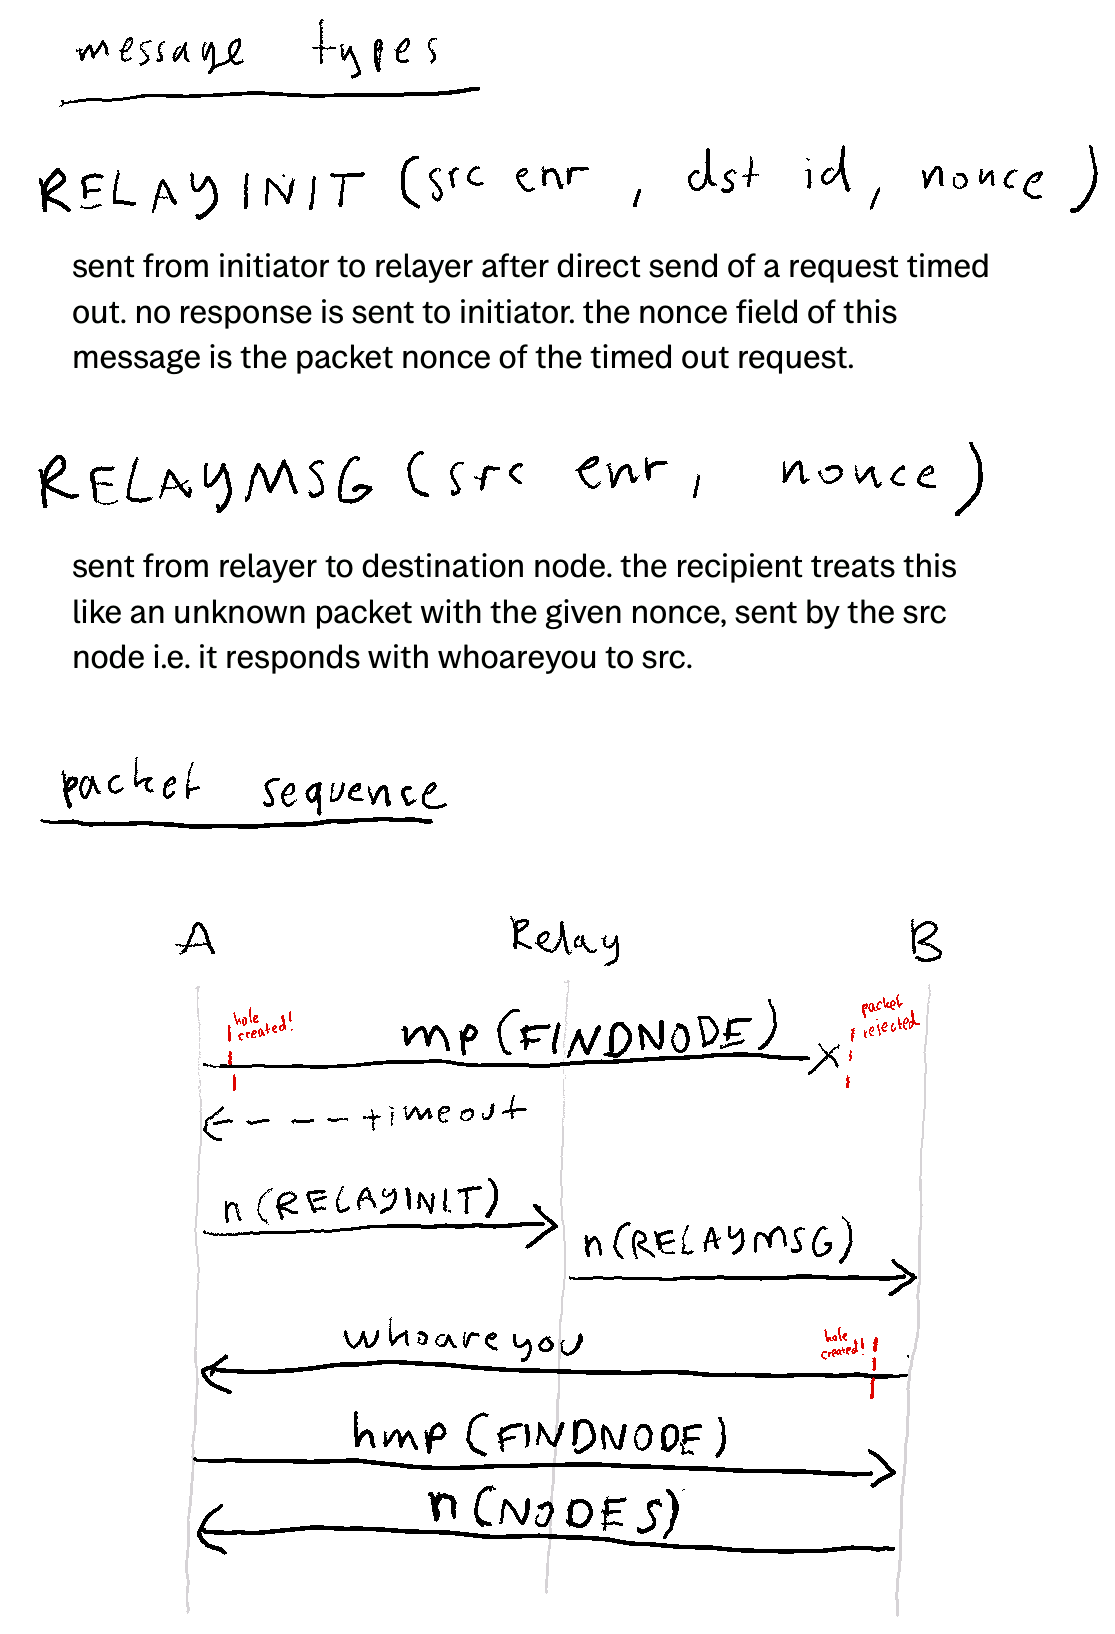 message types
RELAYINIT (src enr, dst id, nonce)
sent from initiator to relayer after direct send of a request timed
out. no response is sent to initiator. the nonce field of this
message is the packet nonce of the timed out request.
RELAYMSG (src enr, nonce)
sent from relayer to destination node. the recipient treats this
like an unknown packet with the given nonce, sent by the src
node i.e. it responds with whoareyou to src.
packet sequence
A Relay B
hole
created!
mp (FINDNODE)
packet
rejected
timeout
n (RELAYINIT)
n (RELAYMSG)
whoareyou
hole
created!
hmp (FINDNODE)
n (NODES)